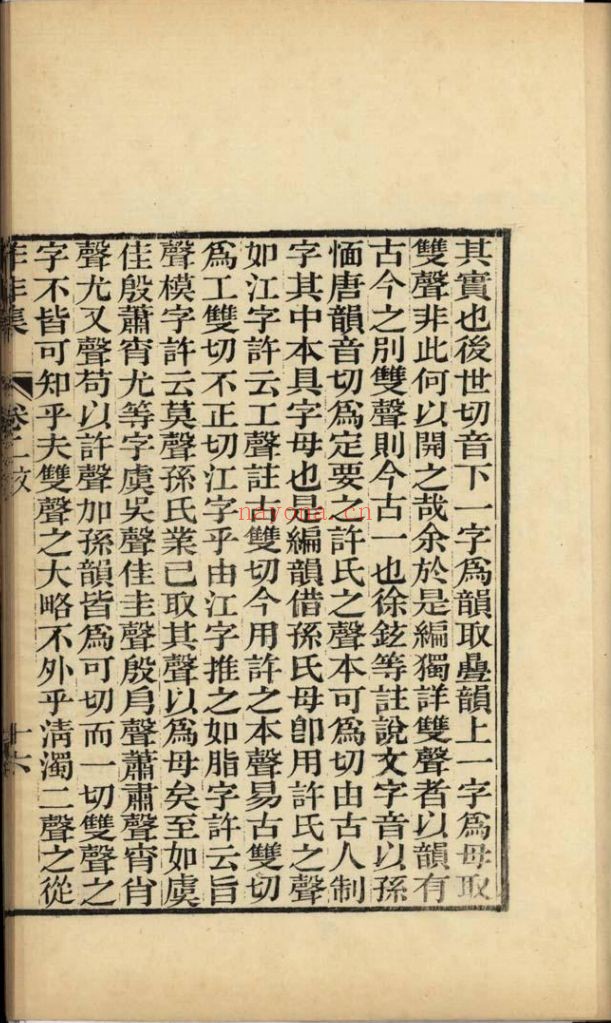 其實也後世切音下一字爲韻取疊韻上一字爲母取
雙聲非此何以開之哉余於是編獨詳雙聲者以韻有
古今之別雙聲則今古一也徐鉉等註說文字音以孫
愐唐韻音切爲定要之許氏之聲本可爲切由古人制
字其中本具字母也是編韻借孫氏母卽用許氏之聲
如江字許云工聲註古雙切今用許之本聲易古雙切
爲工雙切不正切江字乎由江字推之如脂字許云旨
聲模字許云莫聲孫氏業已取其聲以爲母矣至如虞
佳殷蕭宵尤等字虞吳聲佳圭聲殷㐆聲蕭肅聲宵肖
聲尤又聲苟以許聲加孫韻皆爲可切而一切雙聲之
字不皆可知乎夫雙聲之大略不外乎淸濁二聲之從
集 卷二文 十六
nayona.cn